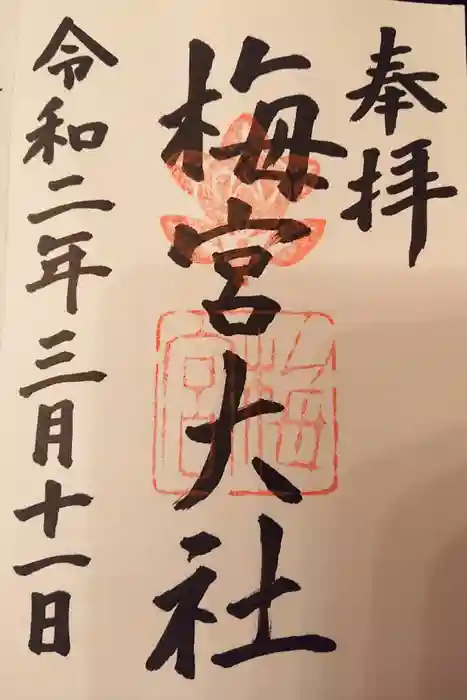 奉拝
梅宮大社
令和二年三月十一日
梅宮